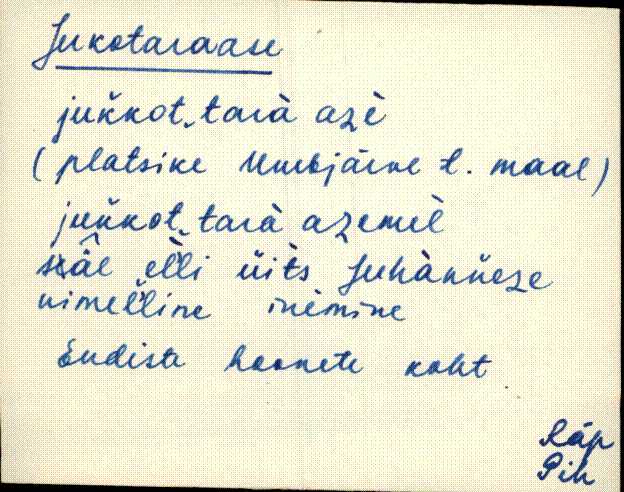 Jukotaraase
juk̆kot‿tarà azè
(platsike Umbjärve t. maal)
juk̆kot‿tarà azemèl
sääl ell̆i üits Juhàn̆ńeze
nimel̆line inèmine
Endiste hoonete koht
Räp
Pih